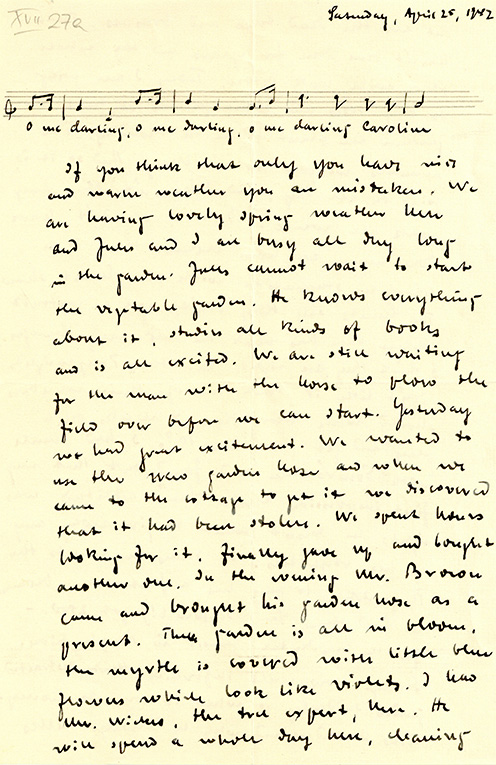 XVII 27a
Saturday, April 25, 1942
O me darling, o me darling, o me darling Caroline
If you think that only you have nice
and warm weather you are mistaken. We
are having lovely spring weather here
and Jules and I are busy all day long
in the garden. Jules cannot wait to start
the vegetable garden. He knows everything
about it, studies all kinds of books
and is all excited. We are still waiting
for the man with the horse to plow the
field over before we can start. Yesterday
we had great excitement. We wanted to
use the new garden hose and when we
came to the cottage to get it we discovered
that it had been stolen. We spent hours
looking for it, finally gave up and bought
another one. In the evening Mr. Brown
came and brought his garden hose as a
present. The garden is all in bloom,
the myrtle is covered with little blue
flowers which look like violets. I had
Mr. the tree expert, here. He
will spend a whole day here, cleaning